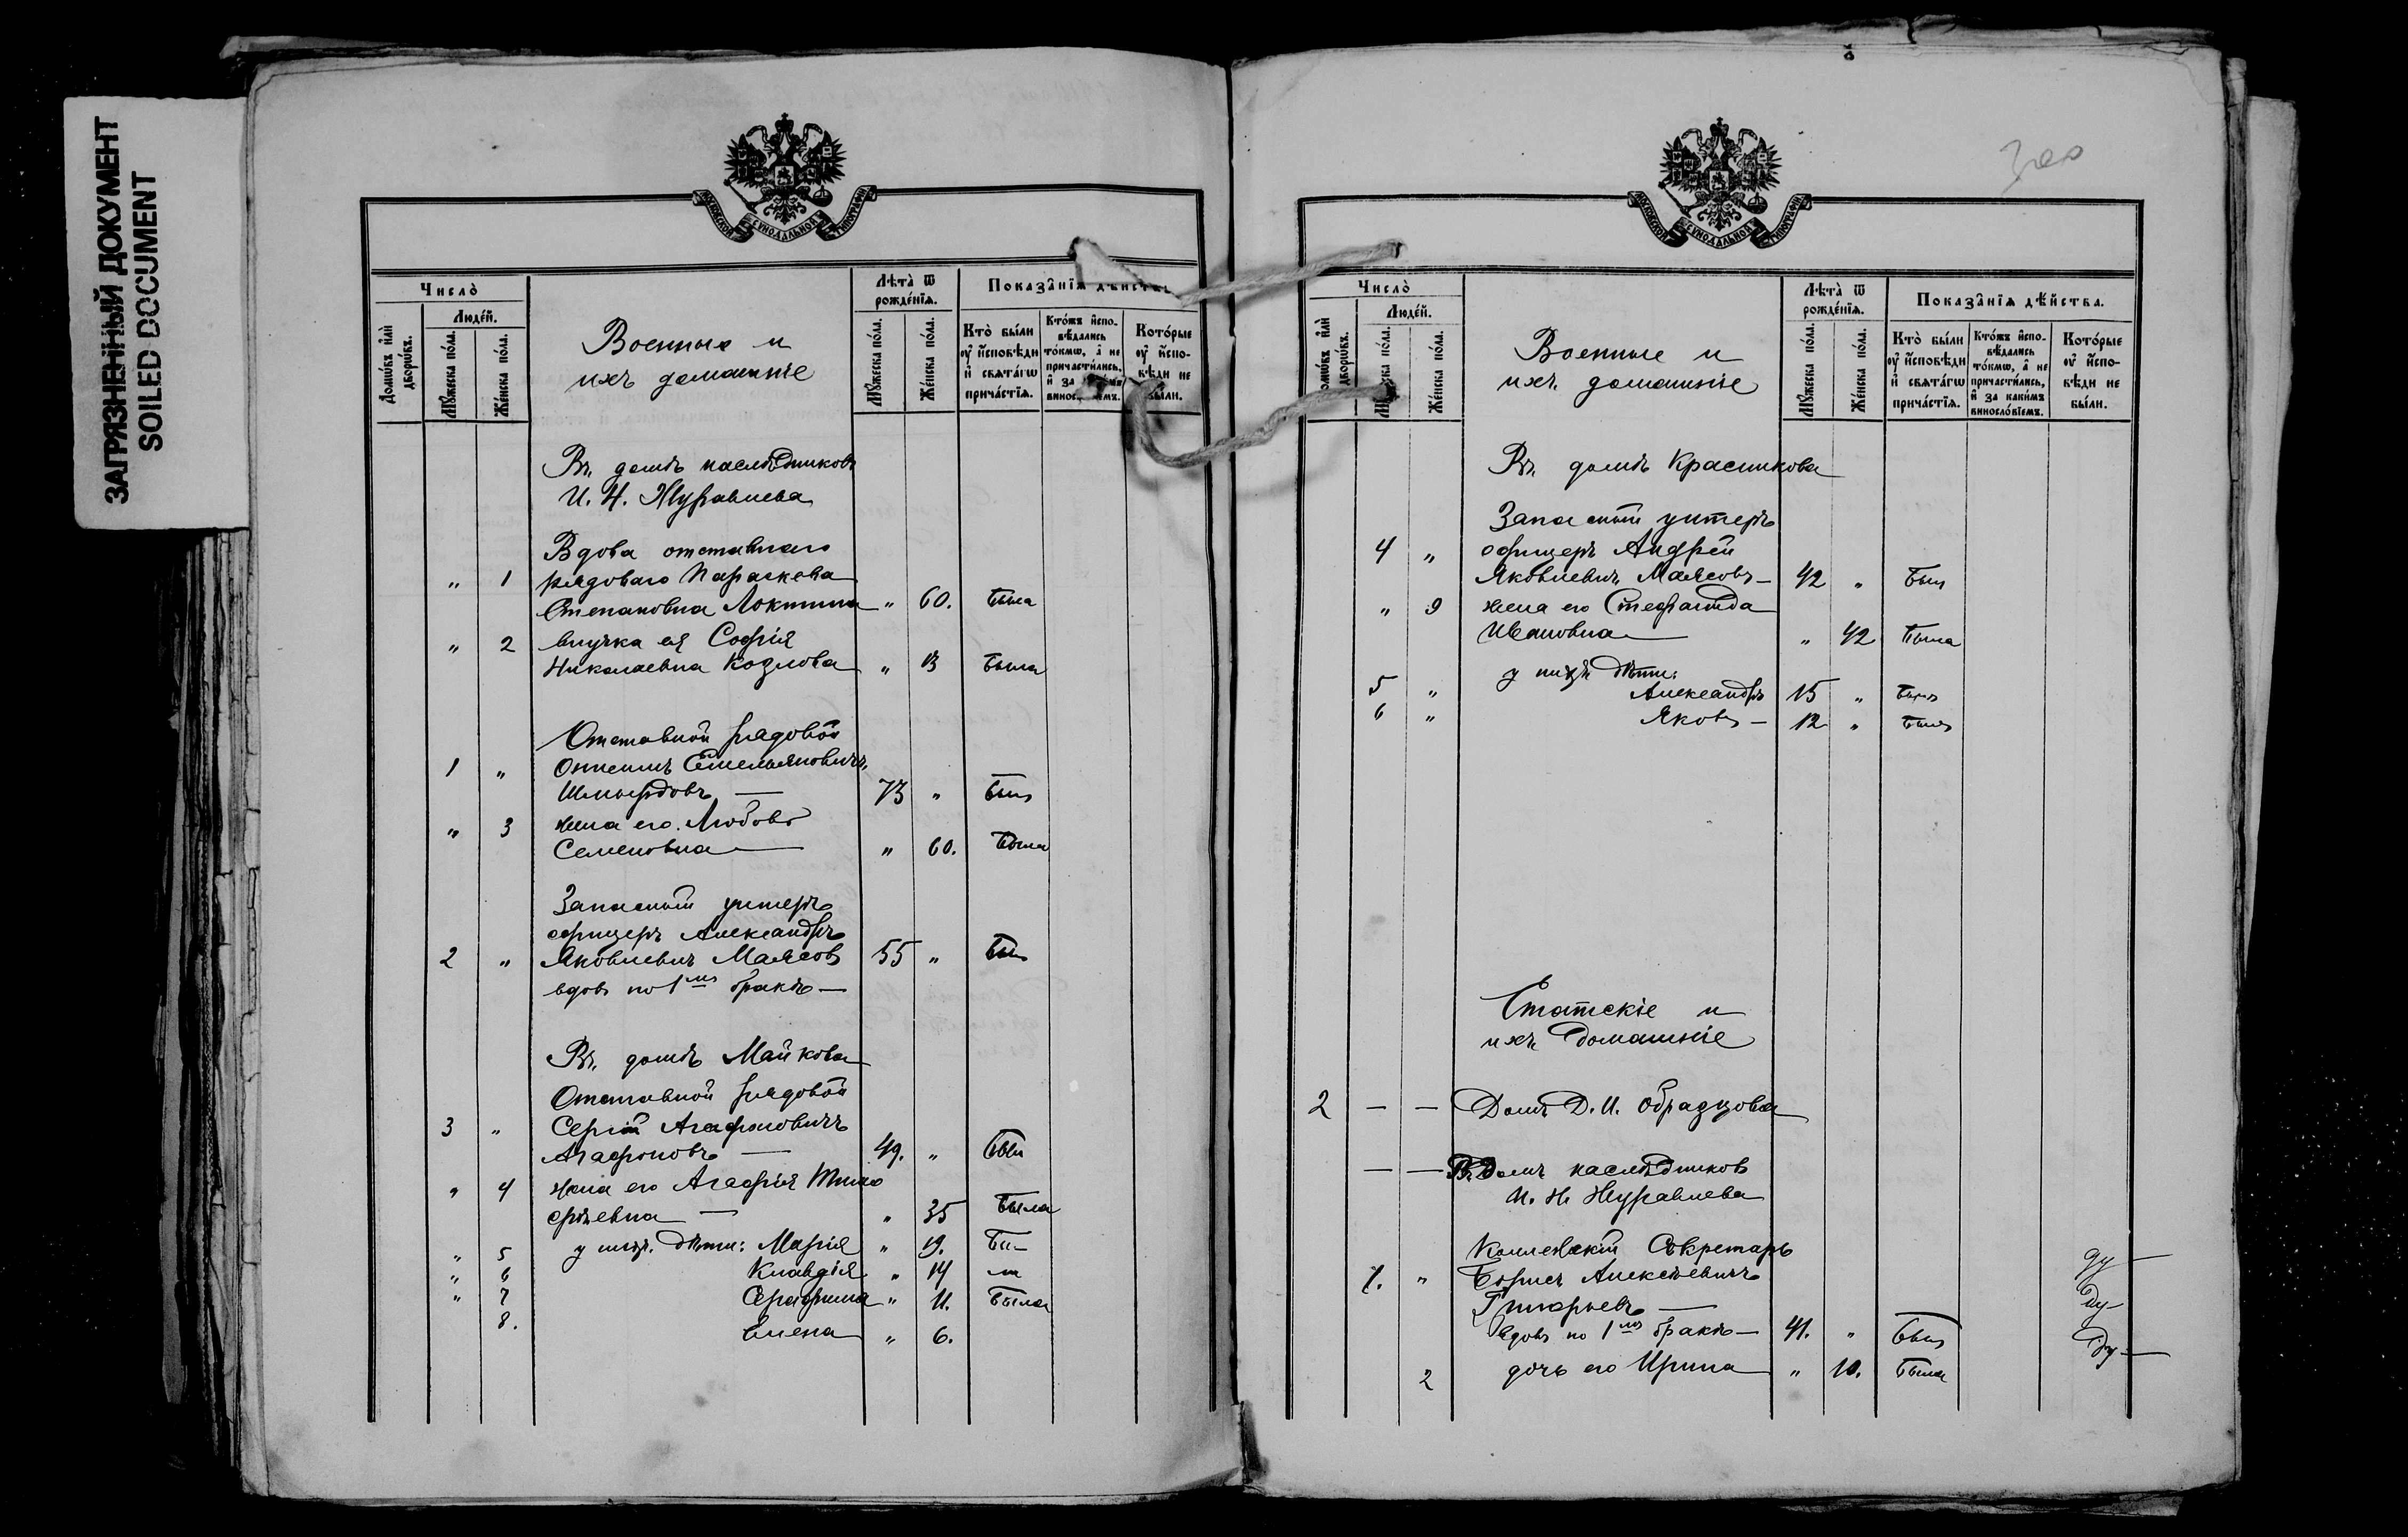 ЗАГРЯЗНЕННЫЙ ДОКУМЕНТ
SOILED DOCUMENT
МОСКОВСКОЙ СѴНОДАЛЬНОЙ ТИПОГРАФІИ
Число̀
Домѡ́въ и҆лѝ дворѡ́въ.
Люде́й.
Мꙋ́жеска по́ла.
Же́нска по́ла.
Военные и
ихъ домашніе
Лѣта̀ ѿ рожде́нїя.
Мꙋ́жеска по́ла.
Же́нска по́ла.
Показа̑нїя дѣ́йства.
Кто̀ бы́ли ᲂу҆ и҆сповѣ́ди и҆ свѧта́гѡ причаⷭ҇тїѧ.
Которые ᲂу҆ и҆сповѣди не были.
Въ домѣ наслѣдниковъ
И. Н. Журавлева
Вдова отставнаго
" 1 рядоваго Параскева
Степановна Локтина " 60. была
" 2 внучка ея Софія
Николаевна Козлова " 13 была
Отставной рядовой
1 " Онисимъ Емельяновичъ
73 " былъ
" 3 жена его Любовь
Семеновна — " 60. была
Запасный унтеръ
офицеръ Александръ
2 " Яковлевичъ Маясовъ 55 " былъ
вдовъ по 1мъ бракѣ —
Въ домѣ Майкова
Отставной рядовой
3 " Сергій Агафоновичъ
Агафоновъ — 49. " былъ
" 4 жена его Агафія Тимо
фѣевна — " 35 была
" 5 у нихъ дѣти: Марія " 19.
" 6 Клавдія " 14
" 7 Серафима " 11. была
8. Елена " 6.
МОСКОВСКОЙ СѴНОДАЛЬНОЙ ТИПОГРАФІИ
Число̀
Домѡ́въ и҆лѝ дворѡ́въ.
Люде́й.
Мꙋ́жеска по́ла.
Же́нска по́ла.
Военные и
ихъ домашніе
Лѣта̀ ѿ рожде́нїя.
Мꙋ́жеска по́ла.
Же́нска по́ла.
Показа̑нїя дѣ́йства.
Кто̀ бы́ли ᲂу҆ и҆сповѣ́ди и҆ свѧта́гѡ прича́стїѧ.
Кто́жъ и҆сповѣ́дались то́кмѡ, а҆ не причасти́лись, и҆ за каки́мъ виносло́вїемъ.
Кото́рые ᲂу҆ и҆сповѣ́ди не бы́ли.
Въ домѣ Красикова
Запасный унтеръ
4 " офицеръ Андрей
Яковлевичъ Маясовъ — 42 " былъ
" 9 жена его Стефанида
Ивановна — " 42 была
у нихъ дѣти:
5 " Александръ 15 " былъ
6 " Яковъ — 12 " былъ
Статскіе и
ихъ домашніе
2 — — Домъ Д. И. Образцова
— — Въ домѣ наслѣдниковъ
И. Н. Журавлева
Коллежскій Секретарь
1. " Борисъ Алексѣевичъ
Григорьевъ —
вдовъ по 1мъ бракѣ — 41. " былъ
2 дочь его Ирина " 10. была